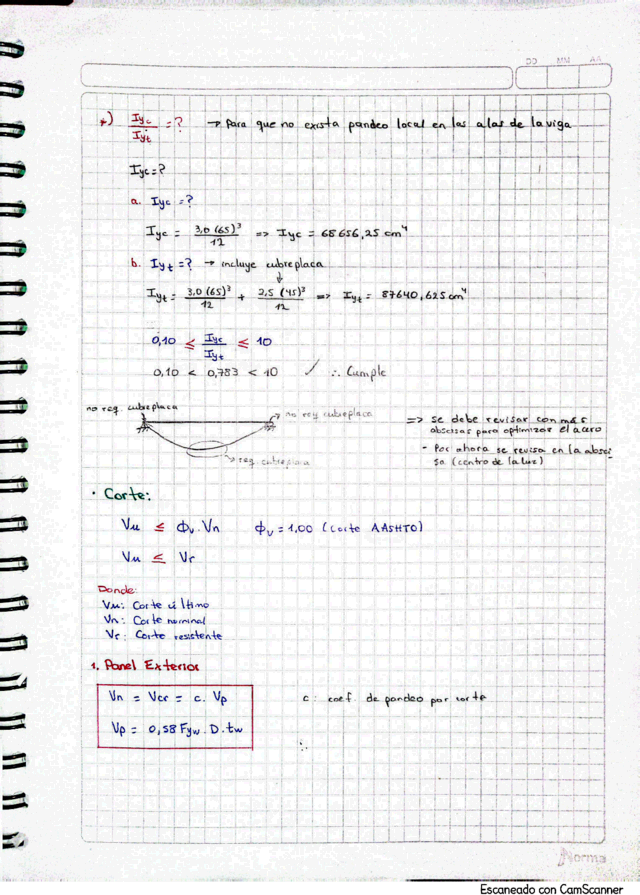 DD MM AA
*) Iyc/Iyt = ? → Para que no exista pandeo local en las alas de la viga
Iyc = ?
a. Iyc = ?
Iyc = 3,0 (65)³/12 => Iyc = 68656,25 cm⁴
b. Iyt = ? → incluye cubreplaca
Iyt = 3,0 (65)³/12 + 2,5 (45)³/12 => Iyt = 87640,625 cm⁴
0,10 ≤ Iyc/Iyt ≤ 10
0,10 < 0,783 < 10 ✓ ∴ Cumple
no req. cubreplaca
no req cubreplaca
req. cubreplaca
=> se debe revisar con más
abscisas para optimizar el acero
- Por ahora se revisa en la absci
sa (centro de la luz)
• Corte:
Vu ≤ ϕv. Vn ϕv = 1,00 (corte AASHTO)
Vu ≤ Vr
Donde:
Vu: Corte último
Vn: Corte nominal
Vr: Corte resistente
1. Panel Exterior
Vn = Vcr = c. Vp c: coef. de pandeo por corte
Vp = 0,58 Fyw. D. tw
∴
Norma
Escaneado con CamScanner